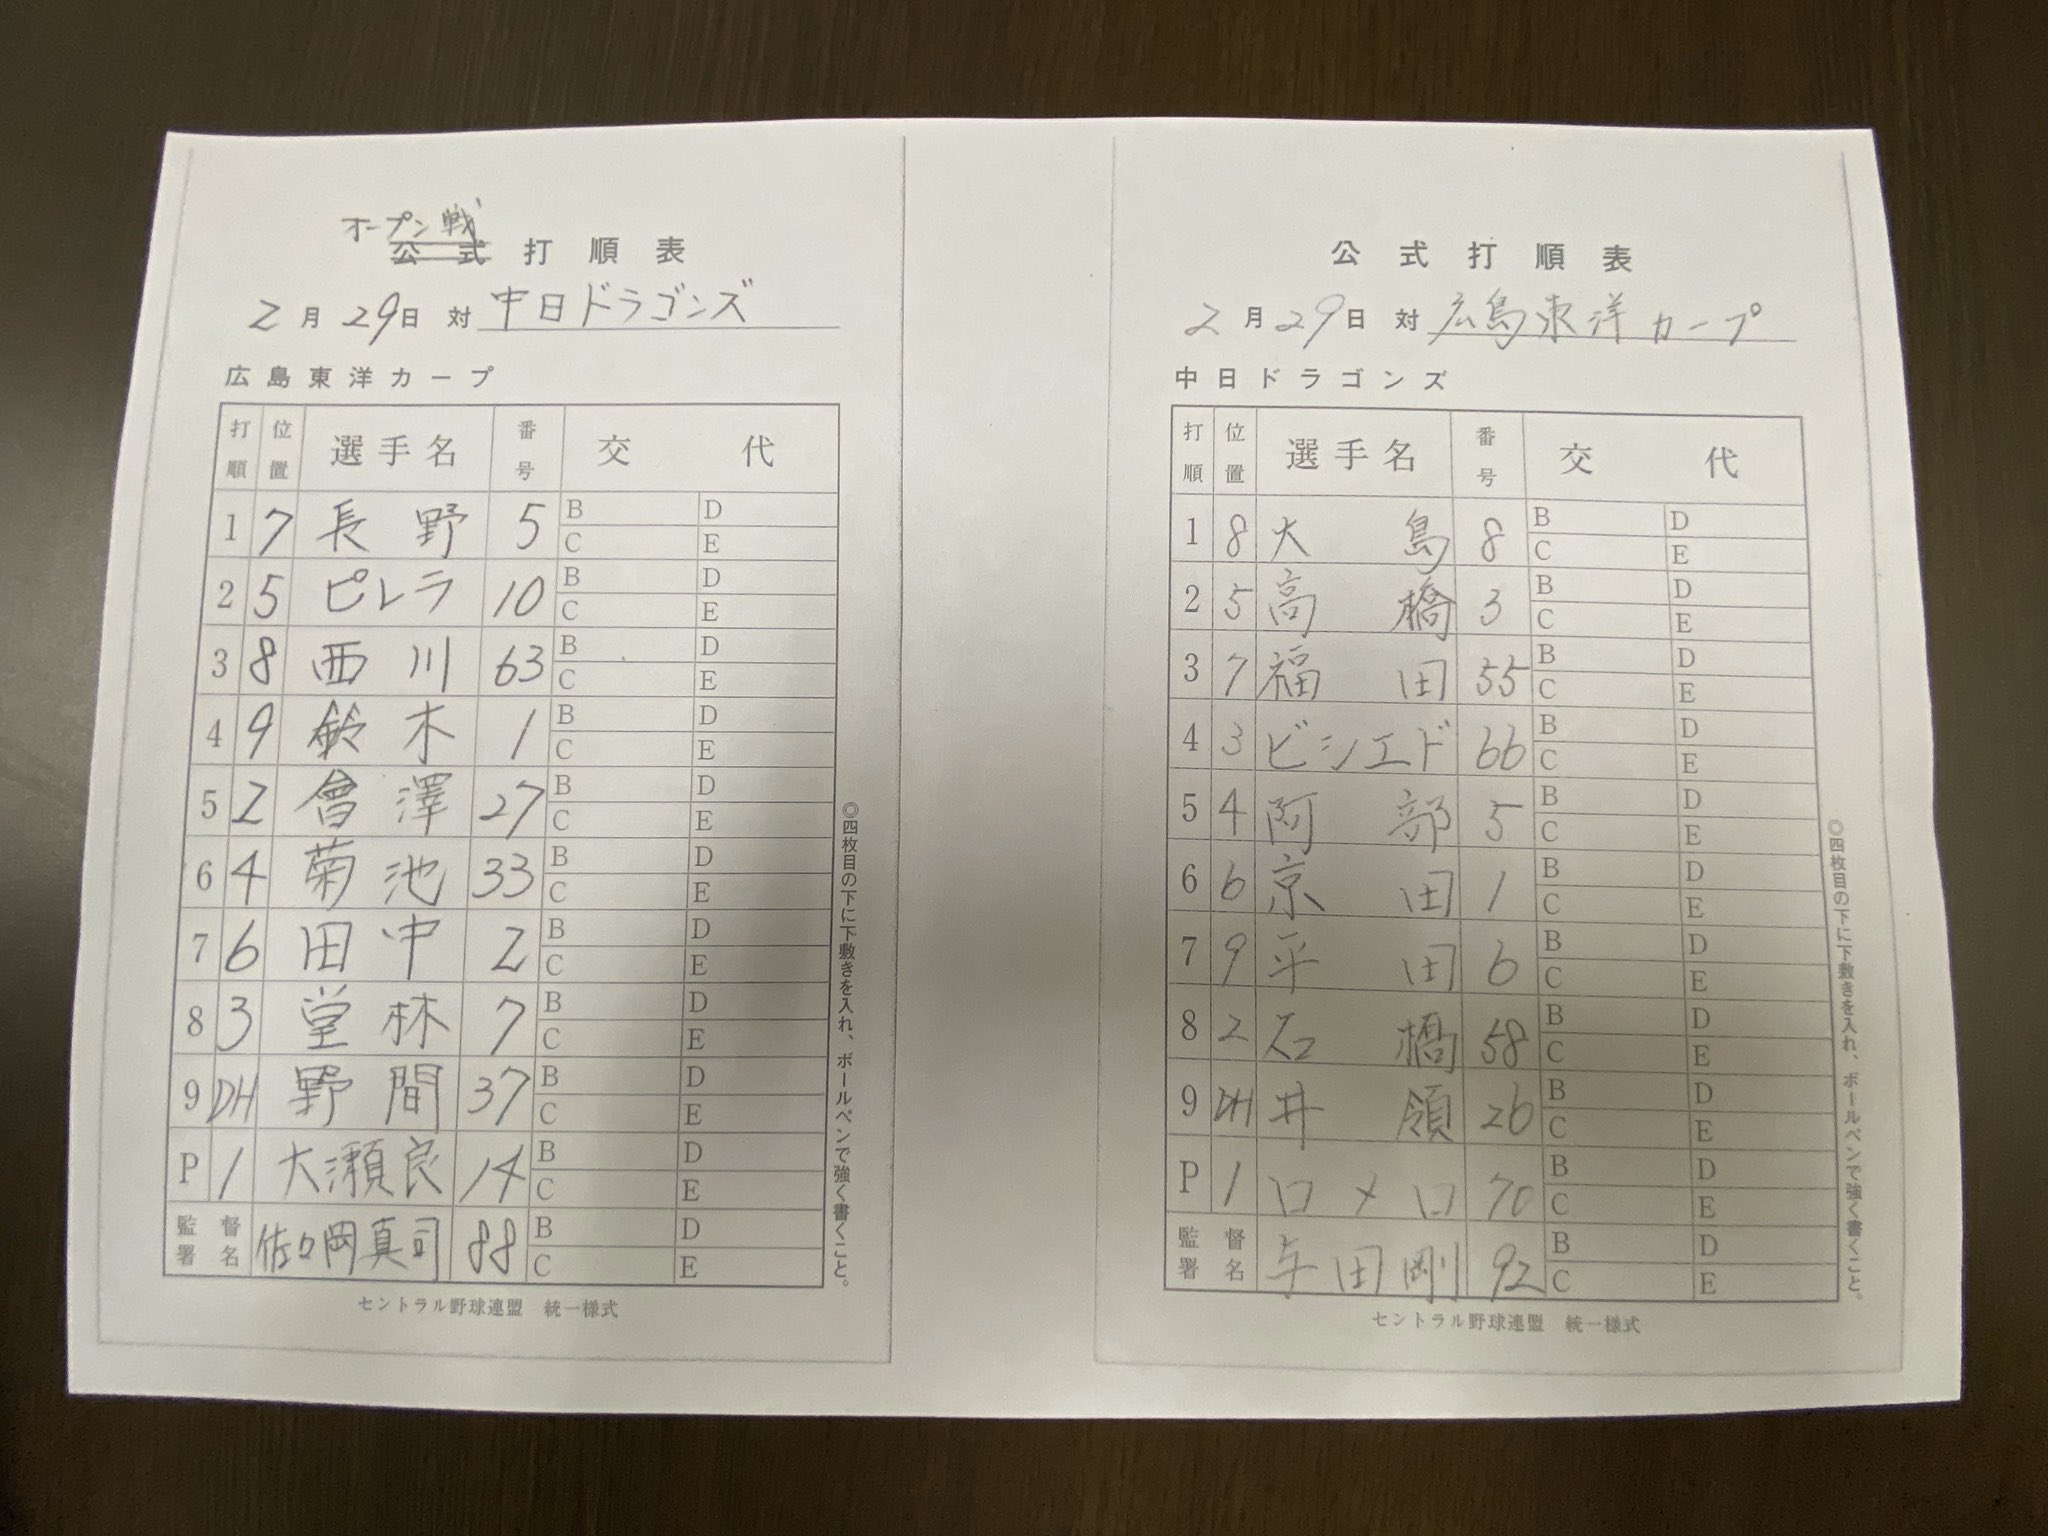 オープン戦
公式打順表
2月29日 対 中日ドラゴンズ
広島東洋カープ
打順 位置 選手名 番号 交代
1 7 長野 5 B D C E
2 5 ピレラ 10 B D C E
3 8 西川 63 B D C E
4 9 鈴木 1 B D C E
5 2 會澤 27 B D C E
6 4 菊池 33 B D C E
7 6 田中 2 B D C E
8 3 堂林 7 B D C E
9 DH 野間 37 B D C E
P 1 大瀬良 14 B D C E
監督署名 佐々岡真司 88 B D C E
◎四枚目の下に下敷きを入れ、ボールペンで強く書くこと。
セントラル野球連盟 統一様式
公式打順表
2月29日 対 広島東洋カープ
中日ドラゴンズ
打順 位置 選手名 番号 交代
1 8 大島 8 B D C E
2 5 高橋 3 B D C E
3 7 福田 55 B D C E
4 3 ビシエド 66 B D C E
5 4 阿部 5 B D C E
6 6 京田 1 B D C E
7 9 平田 6 B D C E
8 2 石橋 58 B D C E
9 DH 井領 26 B D C E
P 1 ロメロ 70 B D C E
監督署名 与田剛 92 B D C E
◎四枚目の下に下敷きを入れ、ボールペンで強く書くこと。
セントラル野球連盟 統一様式